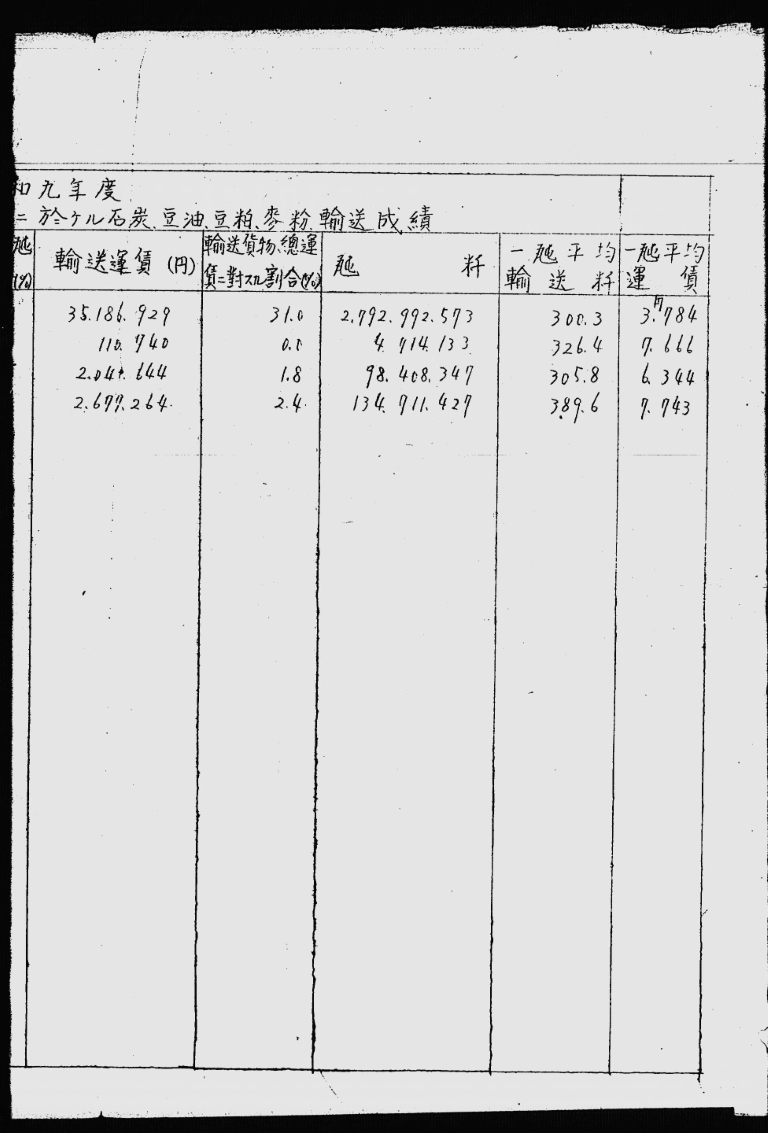 和九年度
ニ於ケル石炭、豆油、豆粕、麥粉、輸送成績
瓲 輸送運賃 (円) 輸送貨物總運 瓲 粁 一瓲平均 一瓲平均
(%) 賃ニ對スル割合(%) 輸送粁 運賃
35.186.929 31.0 2.792.992.573 300.3 3.円784
110.740 0.1 4.714.133 326.4 7.666
2.041.644 1.8 98.408.347 305.8 6.344
2.677.264 2.4 134.711.427 389.6 7.743